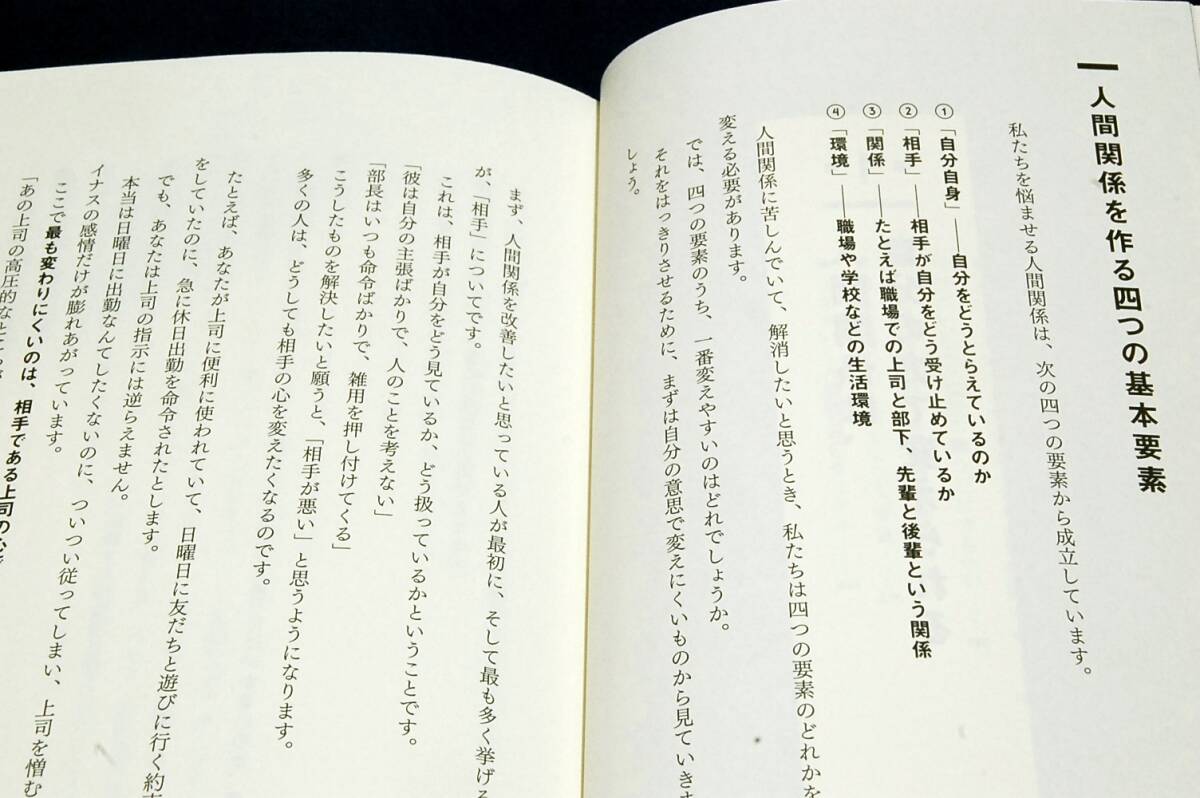 人間関係を作る四つの基本要素
私たちを悩ませる人間関係は、次の四つの要素から成立しています。
①「自分自身」――自分をどうとらえているのか
②「相手」――相手が自分をどう受け止めているか
③「関係」――たとえば職場での上司と部下、先輩と後輩という関係
④「環境」――職場や学校などの生活環境
人間関係に苦しんでいて、解消したいと思うとき、私たちは四つの要素のどれかを
変える必要があります。
では、四つの要素のうち、一番変えやすいのはどれでしょうか。
それをはっきりさせるために、まずは自分の意思で変えにくいものから見ていきま
しょう。
まず、人間関係を改善したいと思っている人が最初に、そして最も多く挙げる
が、「相手」についてです。
これは、相手が自分をどう見ているか、どう扱っているかということです。
「彼は自分の主張ばかりで、人のことを考えない」
「部長はいつも命令ばかりで、雑用を押し付けてくる」
こうしたものを解決したいと願うと、「相手が悪い」と思うようになります。
多くの人は、どうしても相手の心を変えたくなるのです。
たとえば、あなたが上司に便利に使われていて、日曜日に友だちと遊びに行く約
をしていたのに、急に休日出勤を命令されたとします。
でも、あなたは上司の指示には逆らえません。
本当は日曜日に出勤なんてしたくないのに、ついつい従ってしまい、上司を憎む
イナスの感情だけが膨れあがっています。
ここで最も変わりにくいのは、相手である上司の心
「あの上司の高圧的なところが